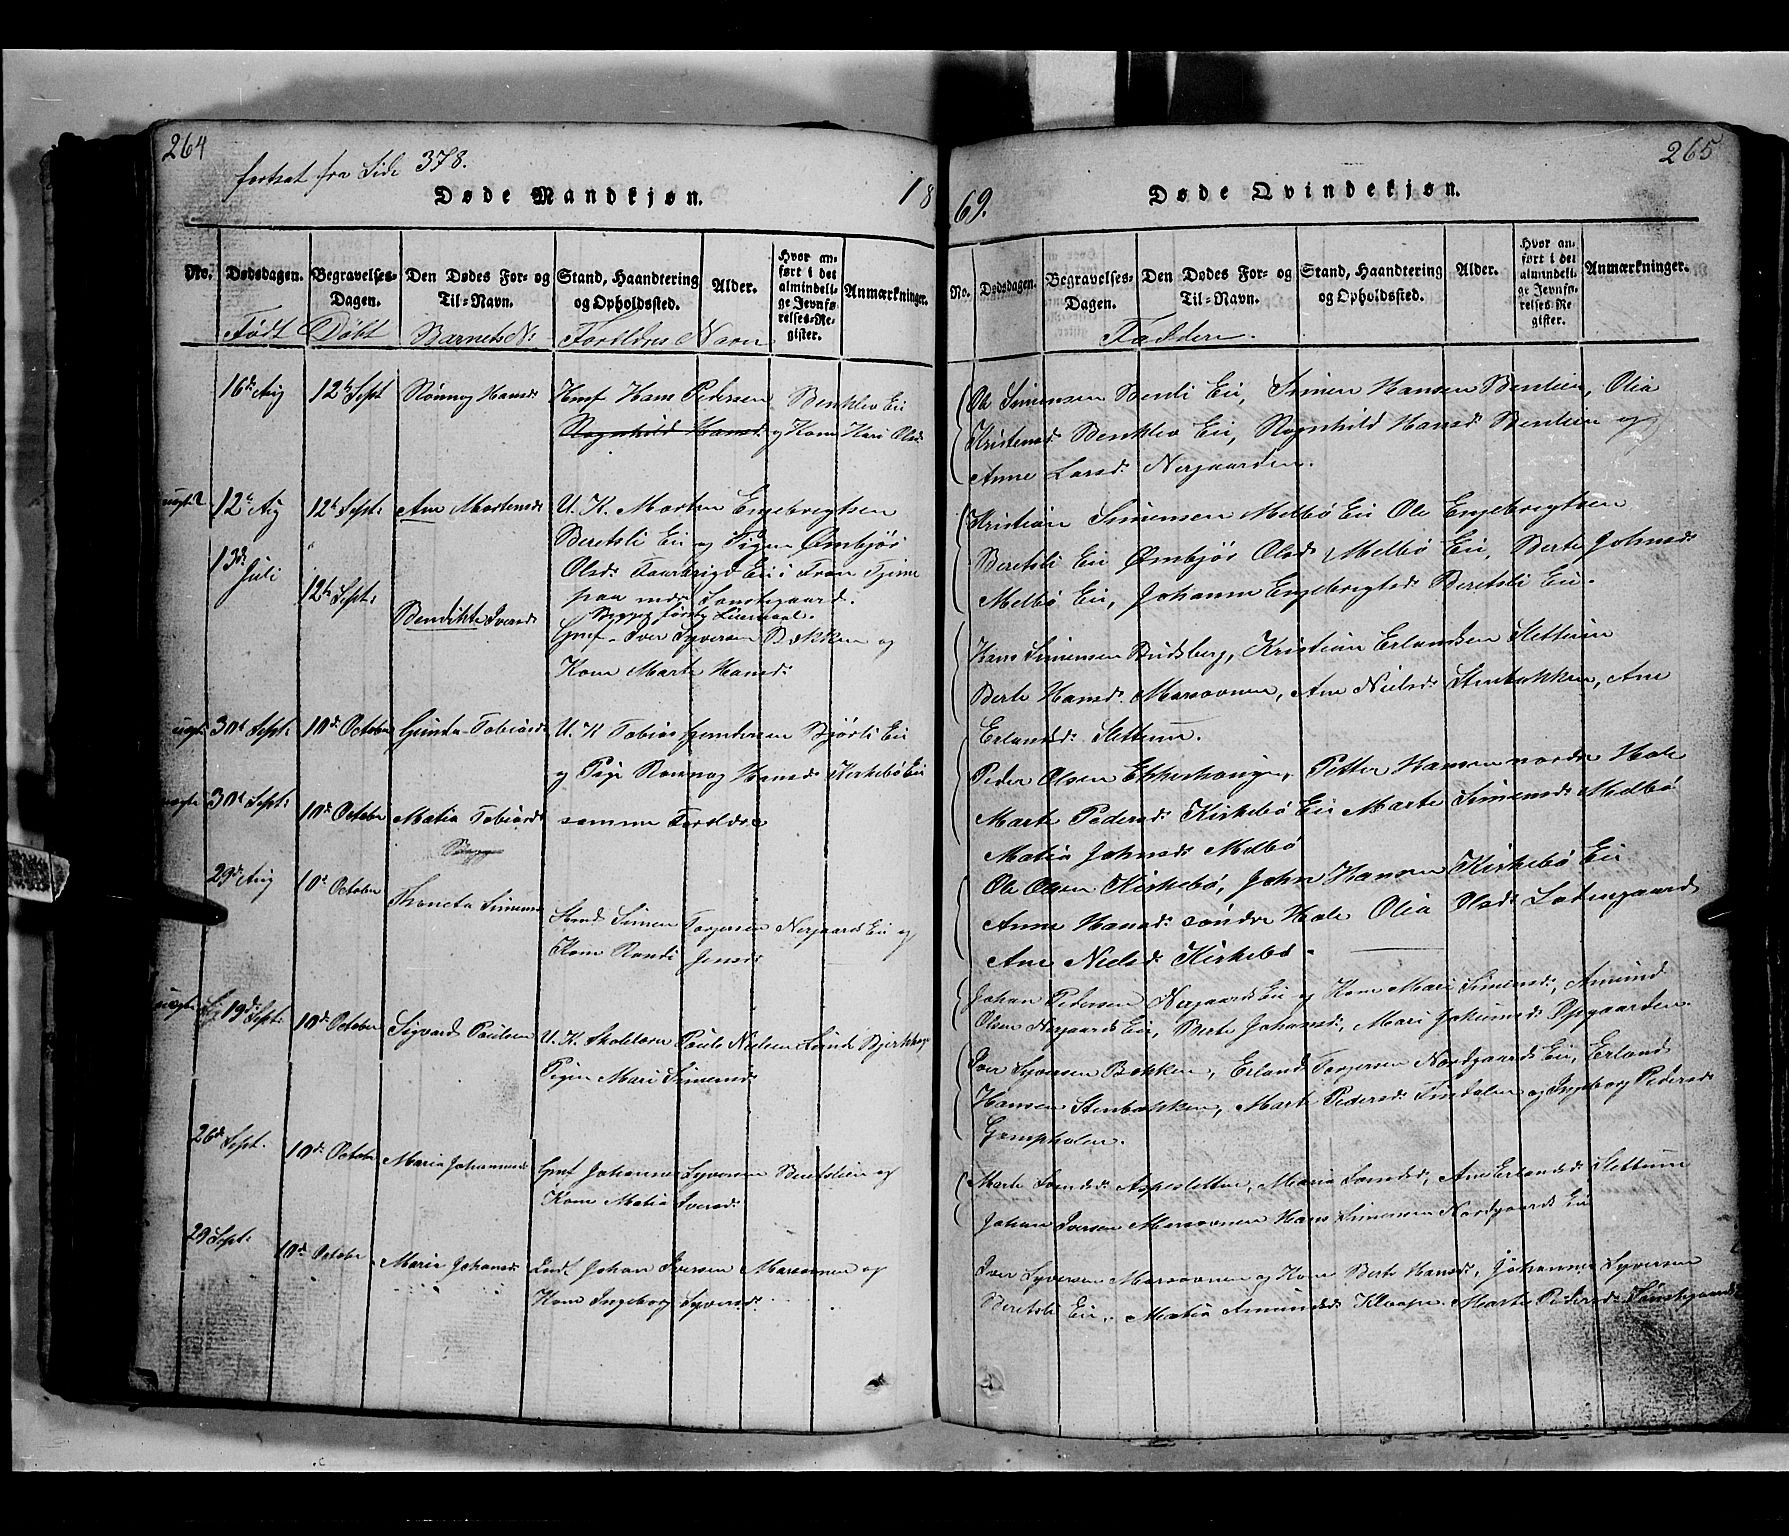 264
fortsat fra Side 378.
Døde Mandkjøn.
18
No.
Dødsdagen.
Begravelses-Dagen.
Den Dødes For- og Til-Navn.
Stand, Haandtering og Opholdssted.
Alder.
Hvor anført i det almindelige Jevnførelses-Register.
Anmærkninger.
Født Døbt Barnets N: Forældres Navn
16de Aug 12te Sept Rønnog Hansd: Hmf Hans Pedersen Benklev Eie
Ragnhild Hansd: og Kone Kari Olsd:
uegte 12te Aug 12te Sept: Ane Mortensd: U. K. Morten Engebregtsen
Beretsli Ei og Pigen Ømbjør
Olsd: Ei i Fron Tjene
paa
13de Juli 12te Sept: Bendikte Iversd:
Gmf Iver Syversen Bakken og
Kone Marte Hansd:
uegte 30te Sept: 10de October Gunda Tobiasd: U. K Tobias Gundersen Bjørli Ei
og Pige Rønnog Hansd: Kirkebø Ei
uegte 30te Sept: 10de October Matia Tobiasd: samme Forældre
29de Aug 10de October Simensd: Simen Torgersen Nergaards Ei og
Kone Randi Jensd:
uegte 19de Sept: 10de October Sigvard Paulsen U. K. Skolelærer Paul Nielsen
Pigen Mari Simensd:
26de Sept. 10de October Maria Johannesd: Gmf Johannes Syversen Beretslien og
Kone Matia Iversd:
29 Sept: 10de October Maria Johansd: Johan Iversen Marsovnen og
Kone Ingeborg Syversd:
265
69.
Døde Qvindekjøn.
No.
Dødsdagen.
Begravelses-Dagen.
Den Dødes For- og Til-Navn.
Stand, Haandtering og Opholdssted.
Alder.
Hvor anført i det almindelige Jevnførelses-Register.
Anmærkninger.
Faddere.
Ole Simensen Benli Ei, Simen Hansen Benlien, Olia
Kristensd: Benklev Ei, Ragnhild Hansd: Benlien og
Anne Larsd: Nergaarden.
Kristian Simensen Melbø Ei Ole Engebregtsen
Beretsli Ei Ømbjør Olsd: Melbø Ei, Berte Johnsd:
Melbø Ei, Johanne Engebregtsd: Beretsli Ei.
Hans Simensen Budsberg, Kristian Erlandsen Slettum
Berte Hansd: Marsovnen, Ane Nielsd: Stenbakken, Ane
Erlandsd: Slettum.
Peder Olsen Ekkerhougen, Petter Hansen nordre Hole
Marte Pedersd: Kirkebø Ei Marte Simensd: Melbø
Matia Johnsd: Melbø
Ole Olsen Kirkebø, John Hansen Kirkebø Ei
Anne Hansd: søndre Hole Olia Olsd: Ladengaard
Ane Nielsd: Kirkebø.
Johan Pedersen Nergaards Ei og Kone Mari Simensd:, Amund
Olsen Nergaards Ei, Berte Johansd:, Mari Jokumsd: Opgaarden.
Iver Syversen Bakken, Erland Torgersen Nordgaards Ei, Erland
Hansen Stenbakken, Marte Pedersd: og Ingeborg Pedersd:
Marte Aspesletten, Maria Ane Erlandsd: Slettum
Johan Iversen Marsovnen Hans Simensen Nordgaards Ei
Iver Syversen Marsovnen og Kone Berte Hansd:, Johannes Syversen
Beretsli Ei, Matia Amundsd: Kloppe. Marte Pedersd: